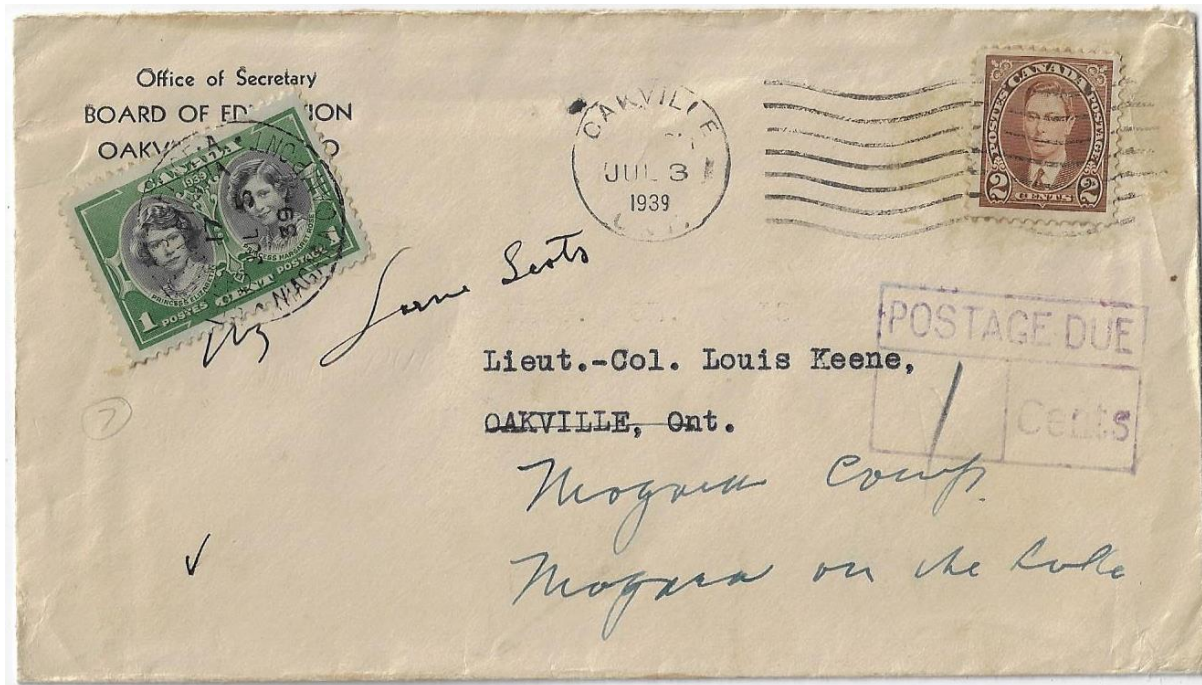 Office of Secretary
BOARD OF ED
ION
OAKV
O
CANADA
1939
PRINCESS ELIZABETH
PRINCESS MARGARET ROSE
1 POSTES CENT POSTAGE 1
OAKVILLE
JUL 3
1939
ONT.
POSTES CANADA POSTAGE
2 CENTS 2
Lorne Scots
POSTAGE DUE
1 Cents
Lieut.-Col. Louis Keene,
OAKVILLE, Ont.
Niagara Camp.
Niagara on the Lake
7